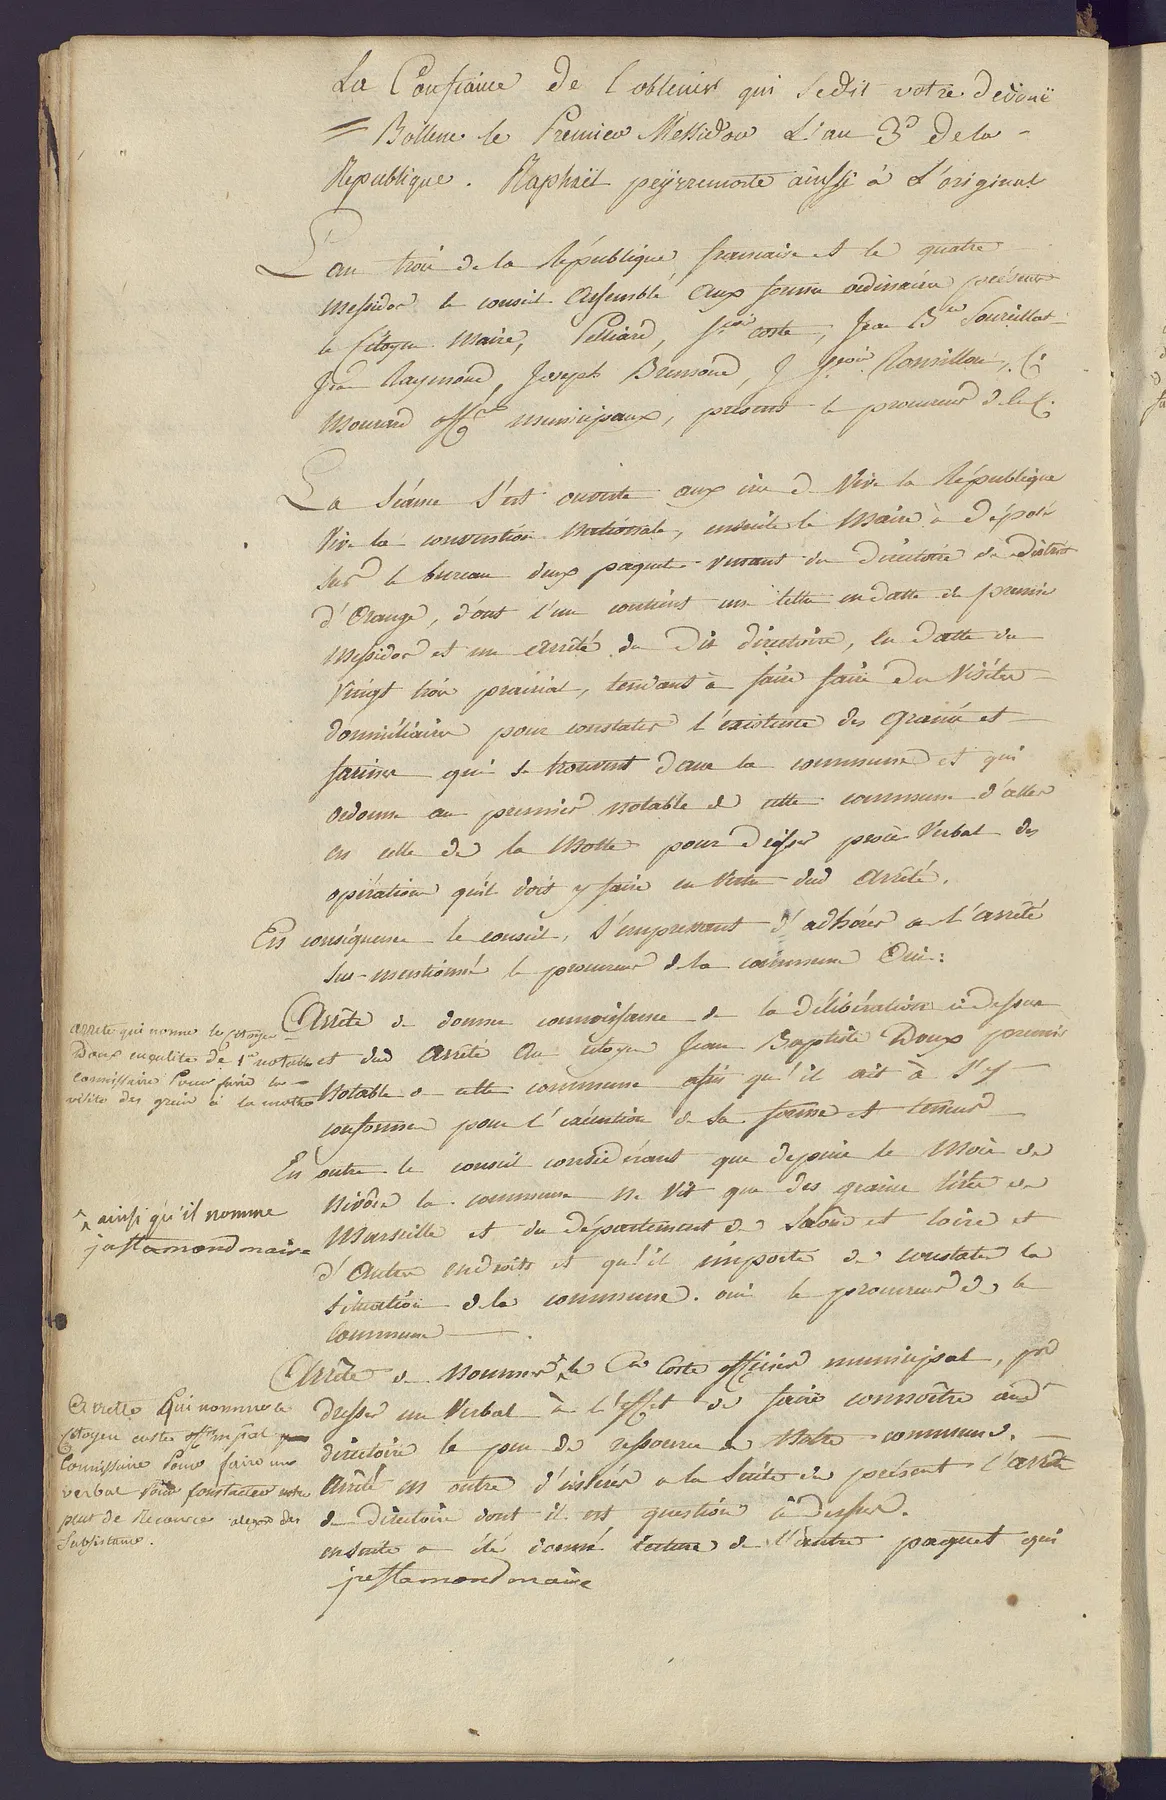 La Confiance de l'obtenir qui se dit votre devoué
= Bollene le Premier Messidor L'an 3e de la
Republique. Raphaël peÿrremorte ainsi à L'original
L'an trois de la République francaise et le quatre
messidor le conseil assemblé aux formes ordinaires présents
le Citoyen Maire, Pelliard, fcois coste, Jean Bte Soureillat
Jean Raymond, Joseph Bremond, J fcois Roussillon, Ci
Mourard offers municipaux, présent le procureur de la C.
La Séance s'est ouverte aux cris de Vive la République
Vive la convention Nationale, ensuite le Maire à déposé
sur le bureau deux paquets venant du directoire du district
d'Orange, d'ont l'un contient une lettre en datte du premier
Messidor et un arrêté du dit directoire, en datte du
Vingt trois prairial, tendant à faire faire des Visites
domiciliaires pour constater l'existence des grains et
farines qui se trouvent dans la commune et qui
ordonne au premier notable de cette commune d'aller
en celle de la Motte pour dresser procès Verbal des
opérations qu'il doit y faire en Vertu dud arrêté.
En conséquence le conseil, s'empressant d'adhérer à l'arrêté
sus-mentionné le procureur de la commune Oui:
Arrête de donner connoissance de la délibération ci dessus
et dud arrêté au citoyen Jean Baptiste Doux premier
Notable de cette commune afin qu'il ait à s'y
conformer pour l'exécution de sa forme et teneur
arrete qui nomme le citoyen
Doux en qualite de 1er notable
Commissaire Pour faire la
visite des grains à la motte
En outre le conseil considérant que depuis le Mois de
Nivôse la commune ne Vit que des grains tirés de
Marseille et du département de Saône et loire et
d'Autres endroits et qu'il importe de constater la
situation de la commune. oui le procureur de la
Commune
^ ainsi qu'il nomme
jastamond maire
Arrête de Nommer ^ le Cen Coste officier municipal, pour
dresser un Verbal à l'effet de faire connoître aud
directoire le peu de ressource de Notre commune.
Arrête en outre d'insérer a la Suite du présent l'arrêté
du Directoire dont il est question ci dessus.
ensuite a été donné lecture de l'autre paquet qui
jastamond maire
Arrette Qui nomme le
Citoyen coste offer mpal
Comissaire Pour faire un
verbal Pour Constater notre
peut de Resource alegard des
Subsistance.